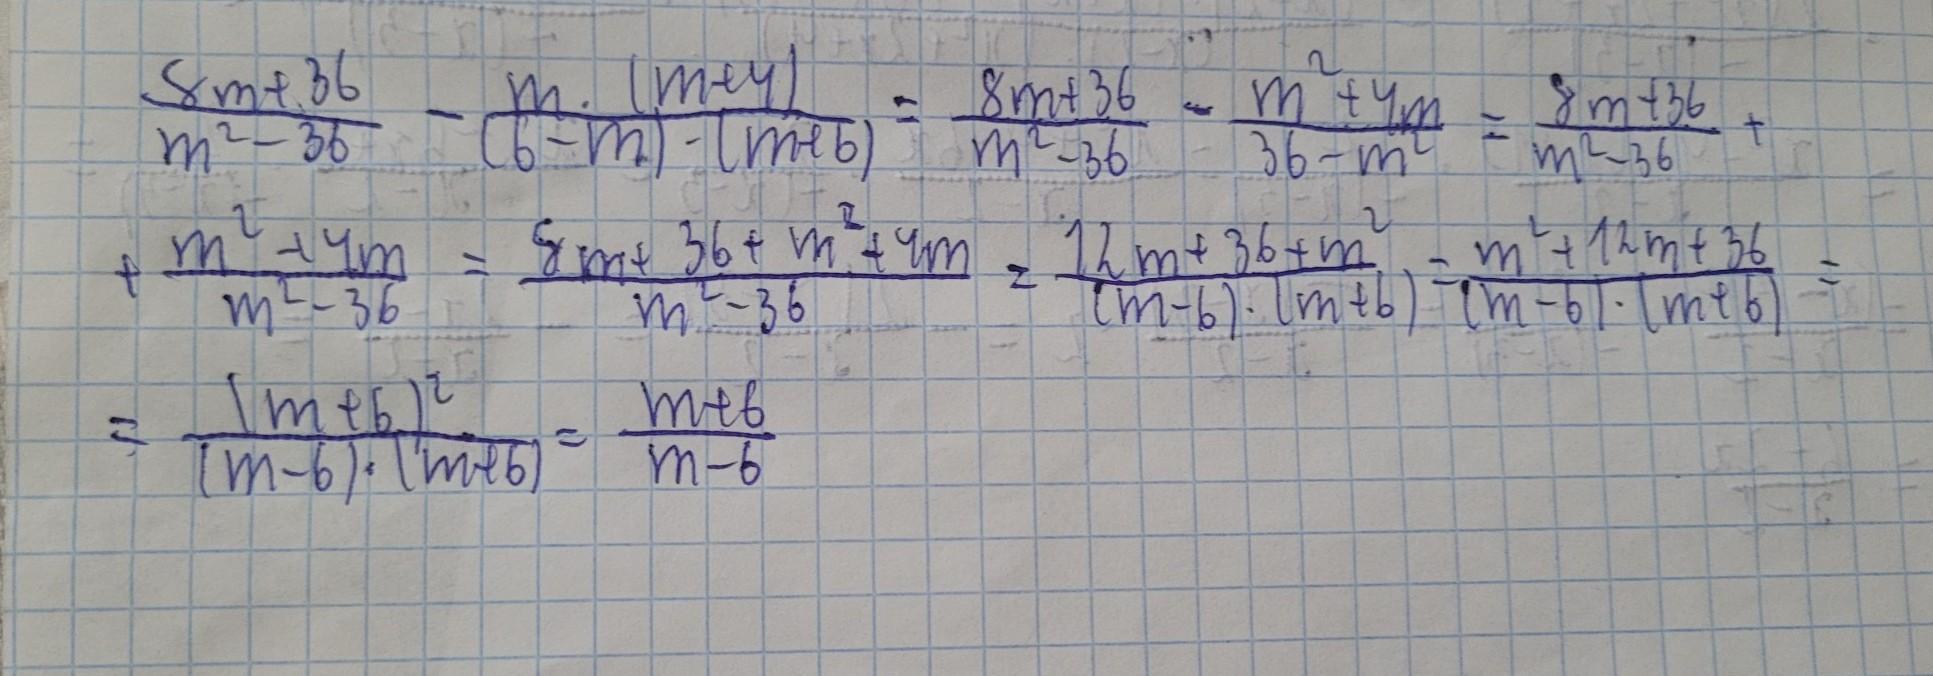 (8m+36)/(m²-36) - (m·(m+4))/((6-m)-(m+6)) = (8m+36)/(m²-36) - (m²+4m)/(36-m²) = (8m+36)/(m²-36) +
+ (m²+4m)/(m²-36) = (8m+36+m²+4m)/(m²-36) = (12m+36+m²)/((m-6)·(m+6)) = (m²+12m+36)/((m-6)·(m+6)) =
= (m+6)²/((m-6)·(m+6)) = (m+6)/(m-6)